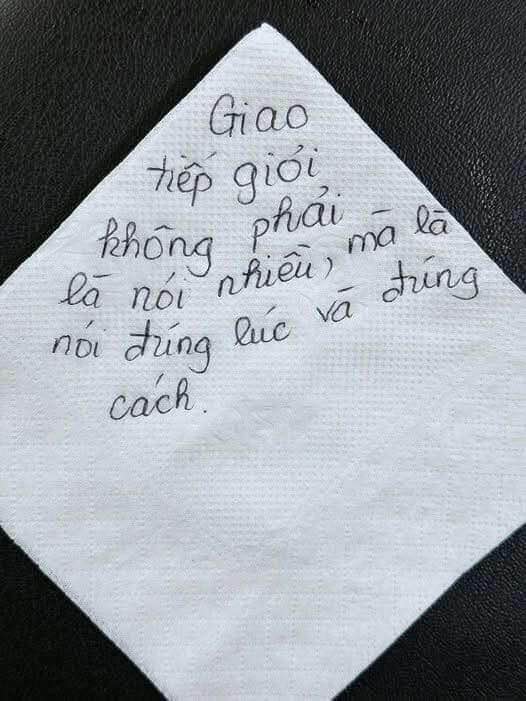 Giao
tiếp giỏi
không phải
là nói nhiều, mà là
nói đúng lúc và đúng
cách.